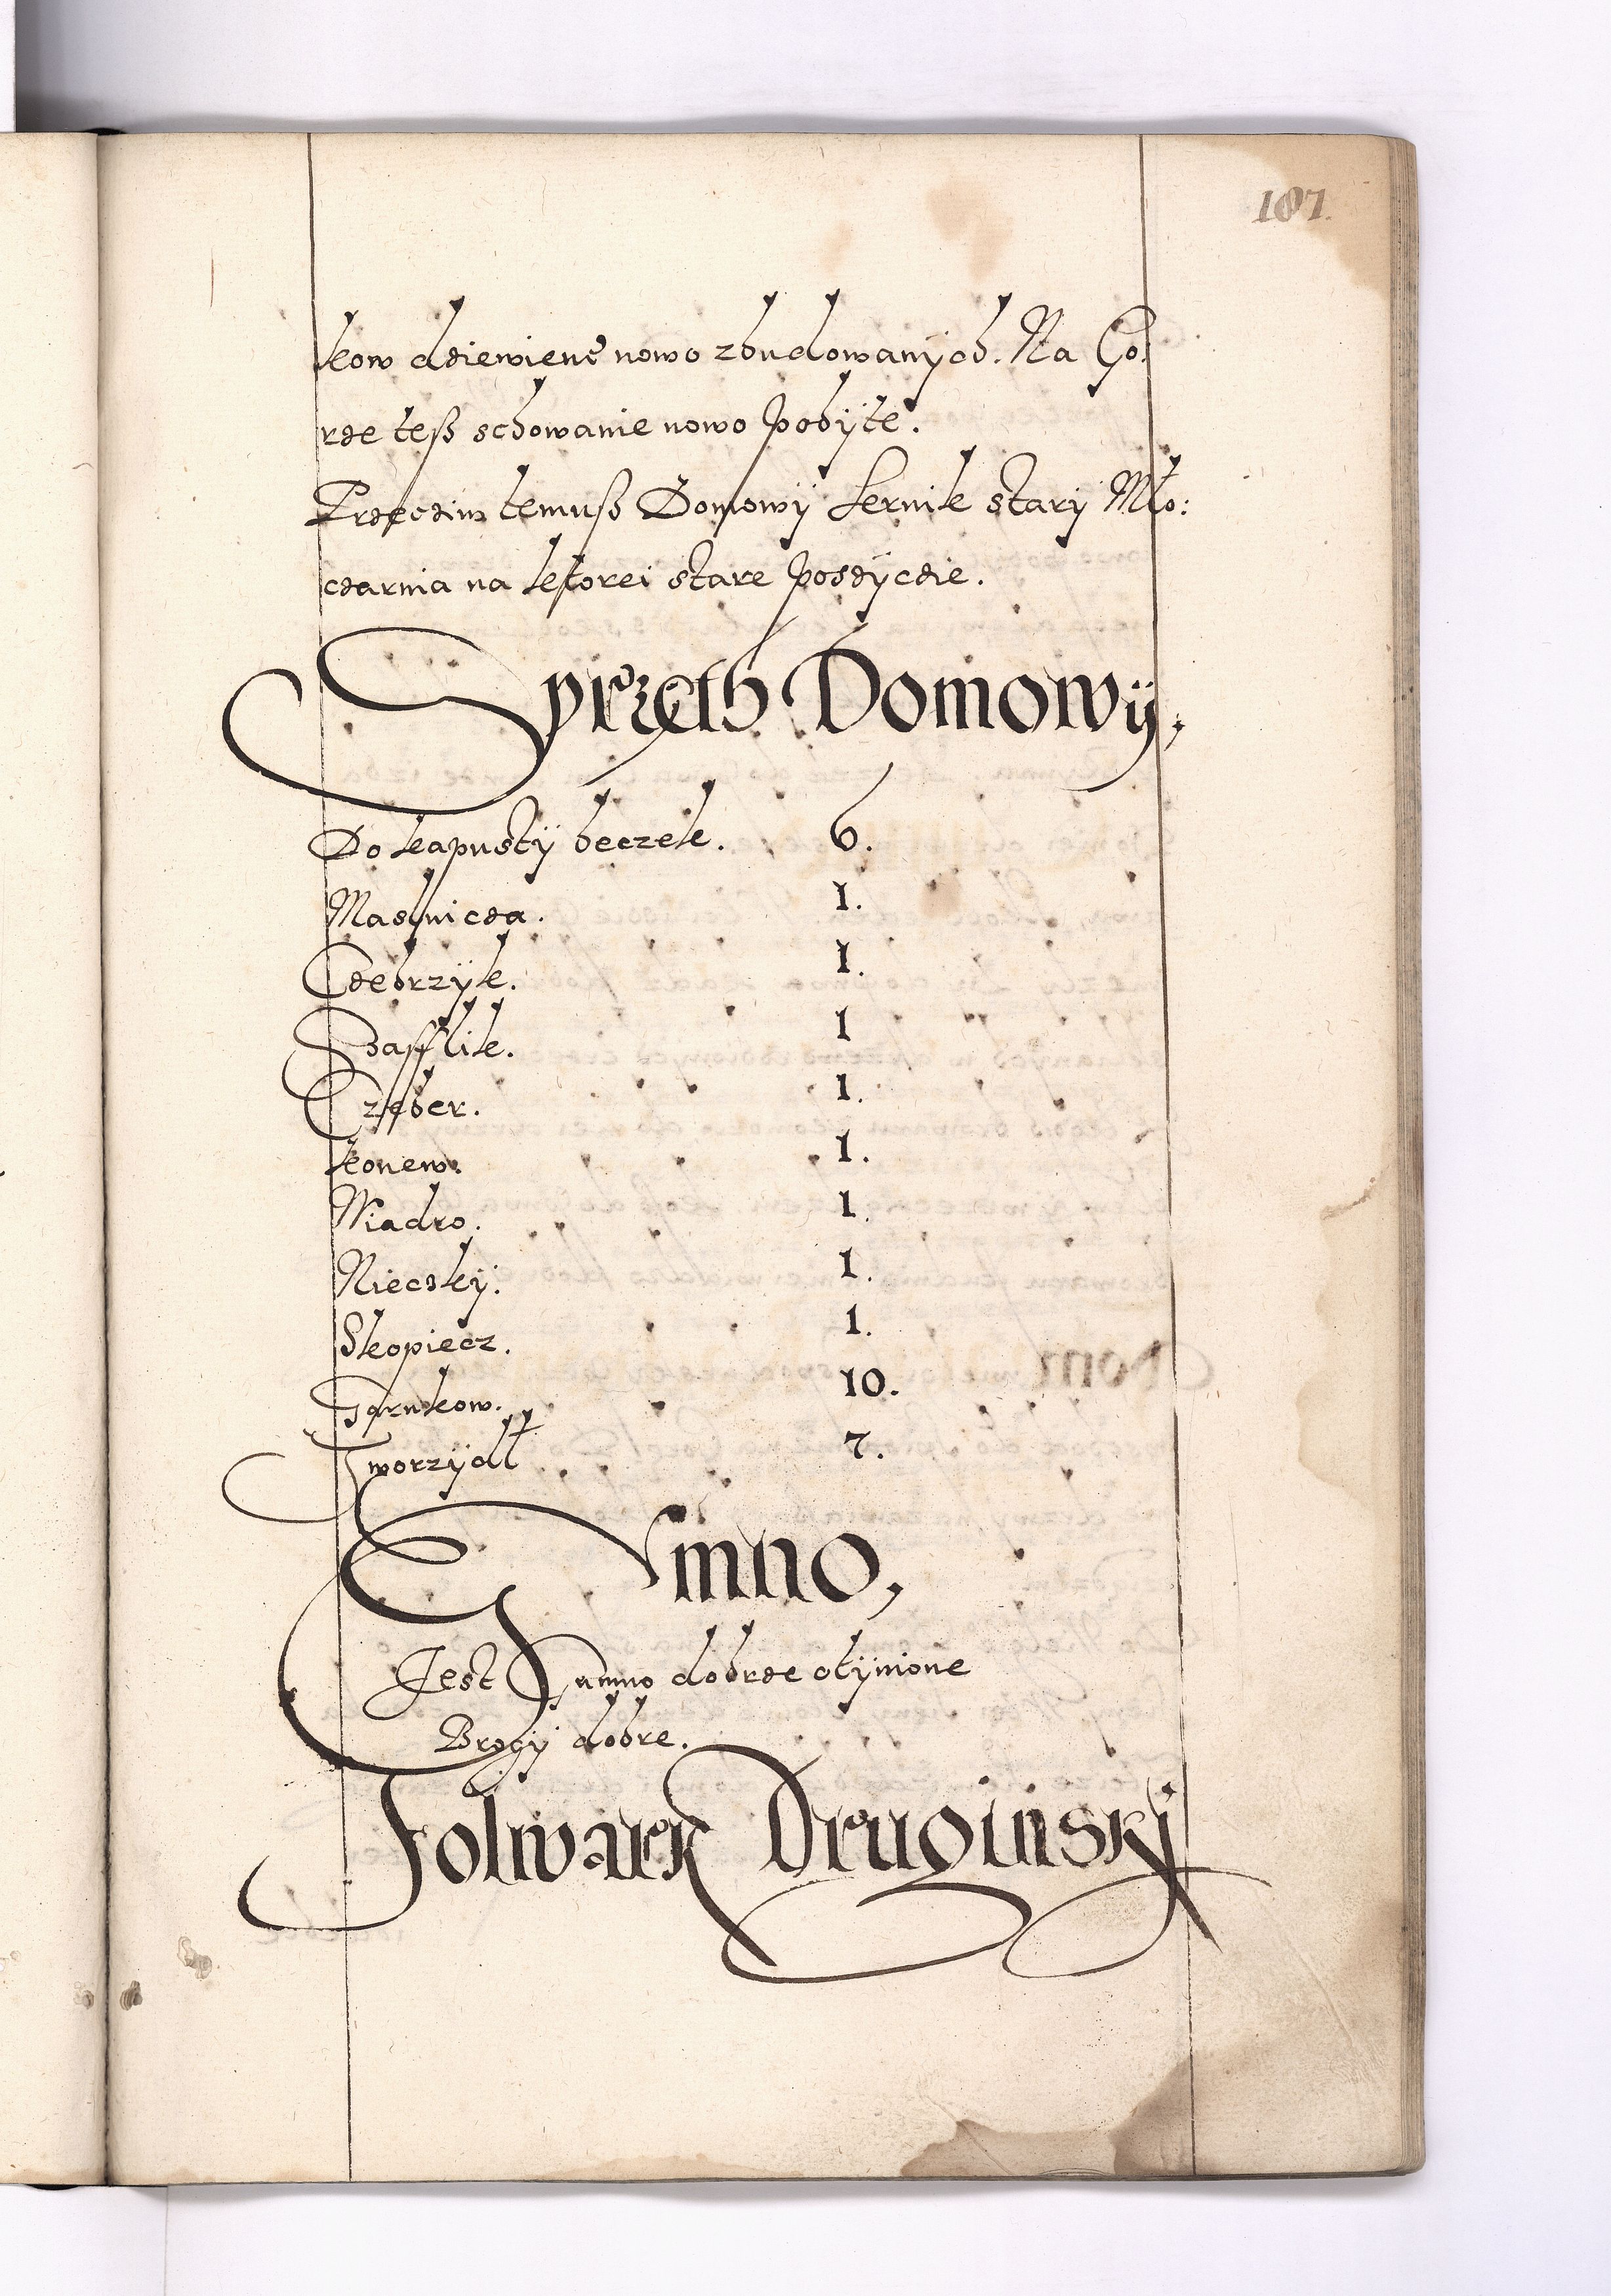 187.
kow dziewienć nowo zbudowanych. Na Go:
rze teß schowanie nowo pobyte.
Przeciw temuß Domowy Lernik stary Mło:
czarnia na ktorei stare poszycie.
Sprzeth Domowy,
Do kapusty beczek. 6.
Maslnicza. 1.
Czebrzyk. 1.
Szafflik. 1
Czeber. 1.
Konew. 1.
Wiadro. 1.
Niecky. 1.
Skopiecz. 1.
Garnkow. 10.
Tworzydł 7.
Gumno,
Jest Gumno dobrze otynione
Brogy dobre.
Folwark Druginsky